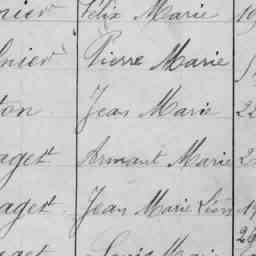 nier Félix Marie 19
nier Pierre Marie
ton Jean Marie 22
aget Armant Marie 2
aget Jean Marie Léon 19
aget Louis Marie 26